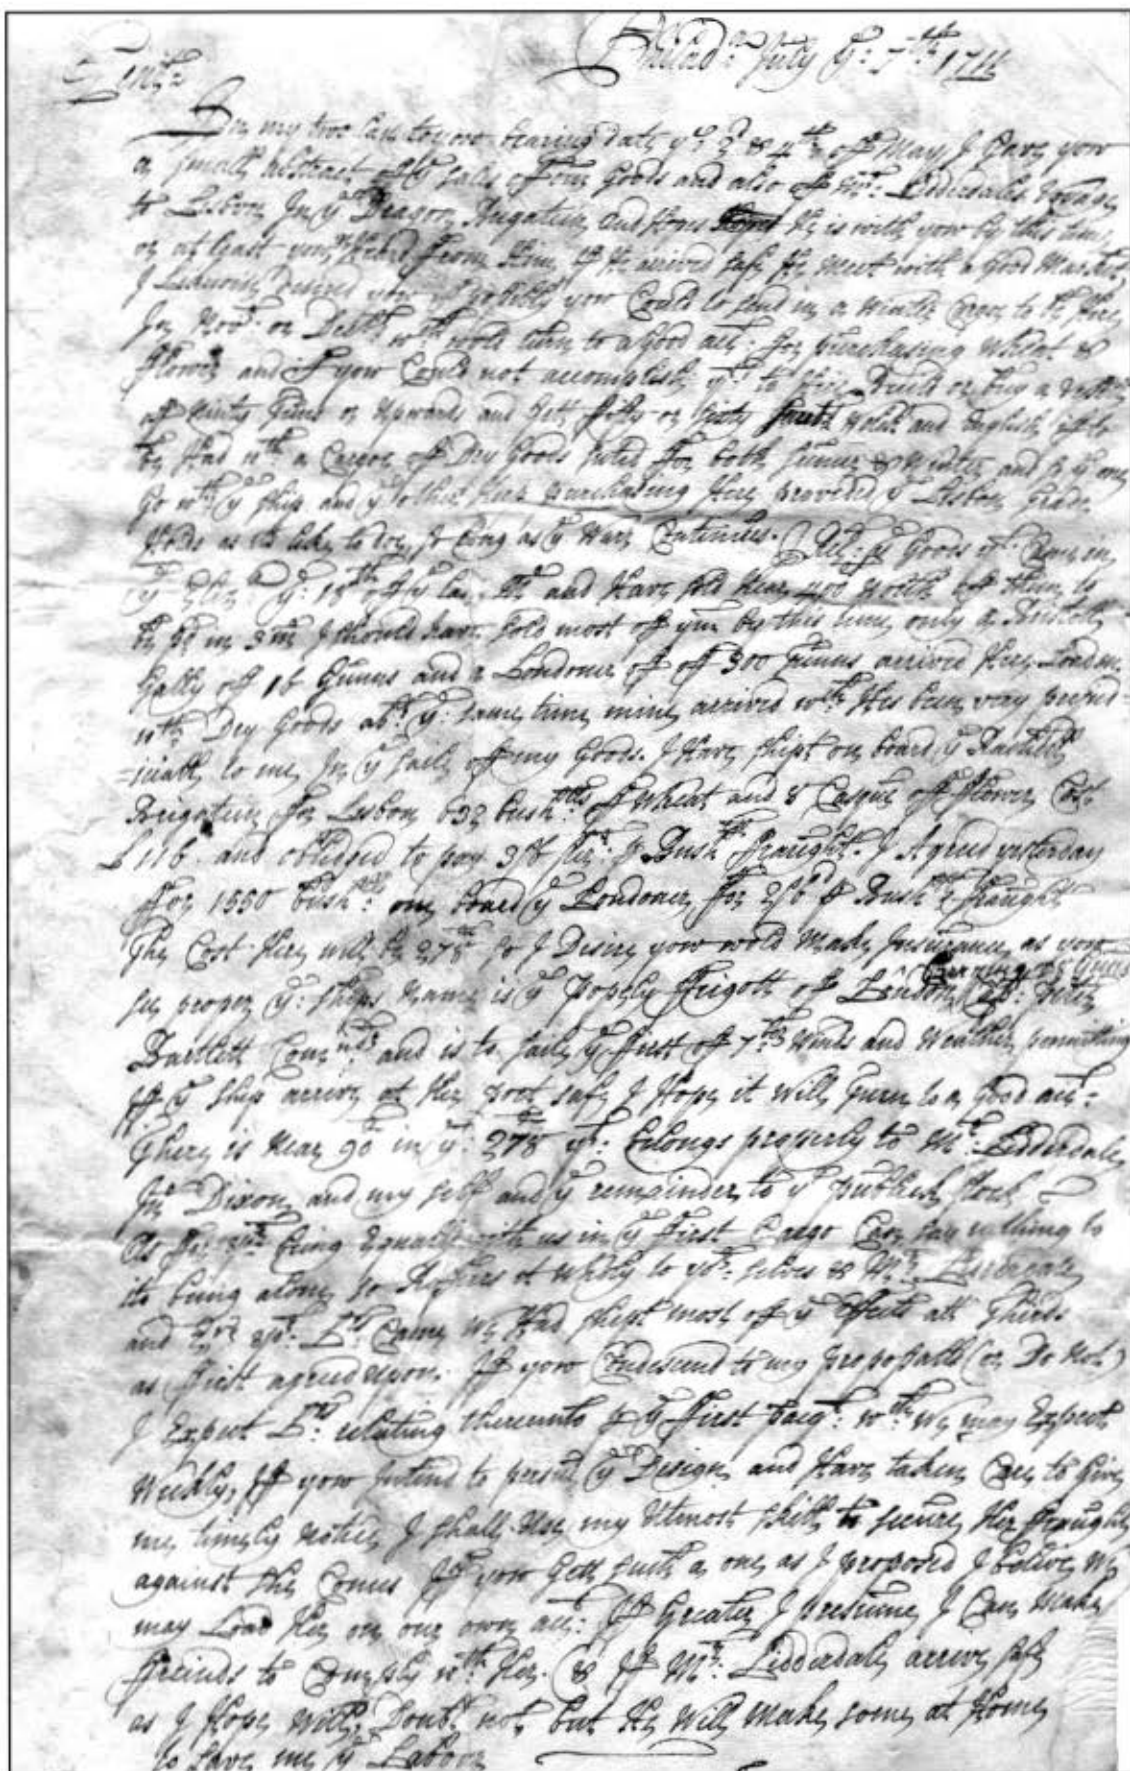 Philad.ᵃ July yᵉ: 7ᵗʰ 1711
Gentⁿ
my two bearing date yᵉ 2ᵈ & 4ᵗʰ off May I Gave yow
a small abstract off yᵉ sales off our Goods and also off Mʳ: Lidderdales Voyage
to Lisbon In yᵉ Dragon Brigatine, and Hopes He is with yow by this time,
or at least Heard from Him, If He arrived safe He meet with a Good Market,
I Desired yow if possible yow Could to send in a Winter Cargo to be Here
In Novʳ: or Decbʳ wᶜʰ would turn to a Good acᵗ: for purchasing Wheat &
Flower and if yow Could not accomplish yᵗ to Hire Build or buy a vessell
off Ninty Tuns or Upwards and Gett fifty or Sixty Welch and English
be Had wᵗʰ a Cargoe off Dry Goods suted For both Summer & Winter, and
Go wᵗʰ yᵉ ship and yᵉ other Here purchasing Here, provided yᵉ Lisbon Trade
Holds as its like to doe, so Long as yᵉ Warr Continues. yᵉ Goods yᵗ Came in
yᵉ 18ᵗʰ off and Have sold Near 400 worth off them to
be pᵈ in 3 mᵒ I should have sold most off ym by this time, only a Bristoll
Gally off 16 Gunns and a Londoner off 300 Tunns arrived Here, Loaden
wᵗʰ Dry Goods abᵗ yᵉ same time mine arrived wᶜʰ Hes been very prejud-
=iciall to me, In yᵉ saile off my Goods. I Have shipt on board yᵉ
Brigatine For Lisbon 632 bushˡˡˢ off Wheat and 8 Casque off Flower Cost
£ 116 and obliedged to pay 3/6 p Bushˡˡ Fraught. I Agreed yesterday
For 1550 bushˡˡˢ: on board yᵉ Londoner, For 2/6ᵈ p Bushˡˡ Fraught
The Cost Here will be 278ᵗᵗ so I Desire yow wold Make Insurance as yow
Carrying 18 Guns
see proper yᵉ: ships Name is yᵉ Popely Frigott off London, Capᵗ: Peter
Bartlett Comᵐᵈʳ: and is to saile yᵉ first off 7ᵇʳ Winds and Weather permitting
If yᵉ ship arrive at Her port safe I Hope it Will Turn to a Good acᵗ:
There is Near 90ᵗᵗ in yᵉ: 278 yᵗ: belongs properly to Mʳ: Lidderdale,
Jⁿᵒ Dixon, and my self and yᵉ remainder to yᵉ publick stock
As For being Equall with us in yᵉ First Cargo Can say nothing to
its being alone, so Reffers it wholy to yoʳ: selves & Mʳ: Lidderdale,
and Ere yoʳ: Lʳˢ Came, We Had shipt most off yᵉ Effects att Thirds
as first agreed upon. If yow Condescend to my proposalls (or Do Not)
I Expect Lʳˢ: relating thereunto p yᵉ First pacqᵗ: wᶜʰ We may Expect
Weekly, If yow Intend to persue yᵉ Design and Have taken Care to Give
me timely notice, I shall Use my Utmost skill to secure Her Fraught
against she Comes If yow Gett such a one as I proposed I beleive We
may Load Her on our own acᵗ: If Greater I presume I Can Make
Freinds to Comply wᵗʰ Her. & If Mʳ: Lidderdale arrive safe
as I Hope Will, Doubt not but He Will make some at Home
to save me yᵉ Labour